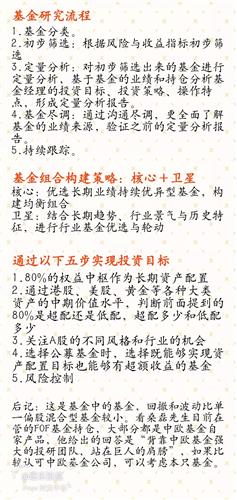 基金研究流程
1.基金分类。
2.初步筛选：根据风险与收益指标初步筛选
3.定量分析：对初步筛选出来的基金进行
定量分析，基于基金的业绩和持仓分析基
金经理的投资目标、投资策略、操作特
点，形成定量分析报告。
4.基金尽调：通过沟通尽调，更全面了解
基金的业绩来源，验证之前的定量分析报
告。
5.持续跟踪。
基金组合构建策略：核心＋卫星
核心：优选长期业绩持续优异型基金，构
建均衡组合
卫星：结合长期趋势、行业景气与历史特
征，进行行业基金优选与轮动
通过以下五步实现投资目标
1.80%的权益中枢作为长期资产配置
2.通过港股、美股、黄金等各种大类
资产的中期价值水平，判断前面提到的
80%是超配还是低配，超配多少和低配
多少
3.关注A股的不同风格和行业的机会
4.选择公募基金时，选择既能够实现资
产配置目标也能够有超额收益的基金
5.风险控制
后记：这是基金中的基金，回撤和波动比单
一偏股混合型基金较小。看桑磊先生目前在
管的FOF基金持仓，大部分都是中欧基金自
家产品，他给出的回答是“背靠中欧基金强
大的投研团队，站在巨人的肩膀”，如果比
较认可中欧基金公司，可以考虑本只基金。